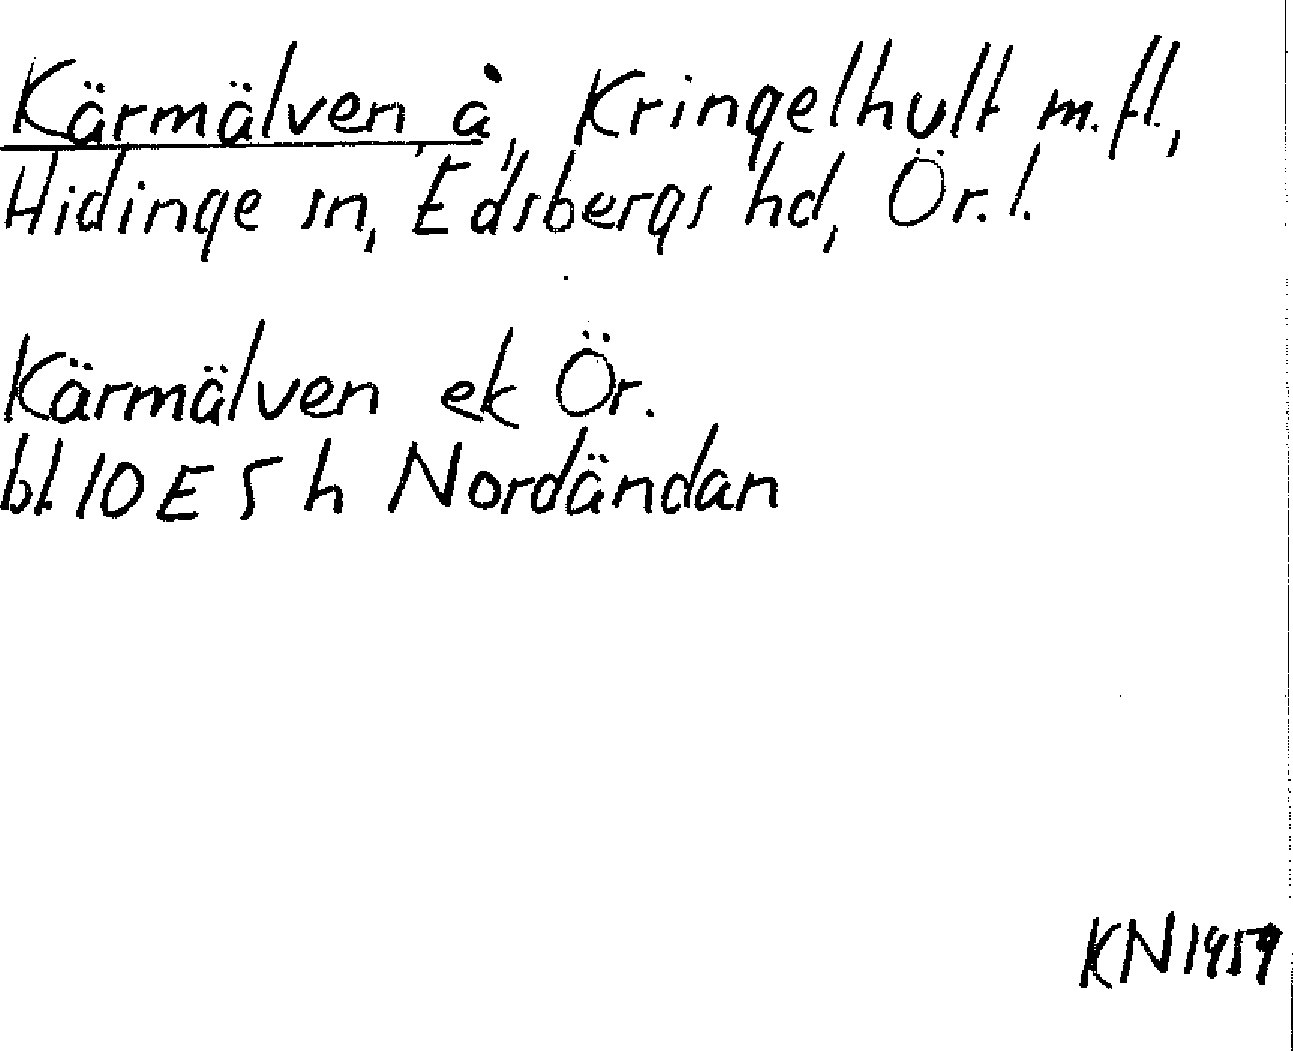 Kärmälven å, Kringelhult m.fl.,
Hidinge sn, Edsbergs hd, Ör. l.
Kärmälven ek Ör.
bl. 10 E 5 h Nordändan
KN 1959